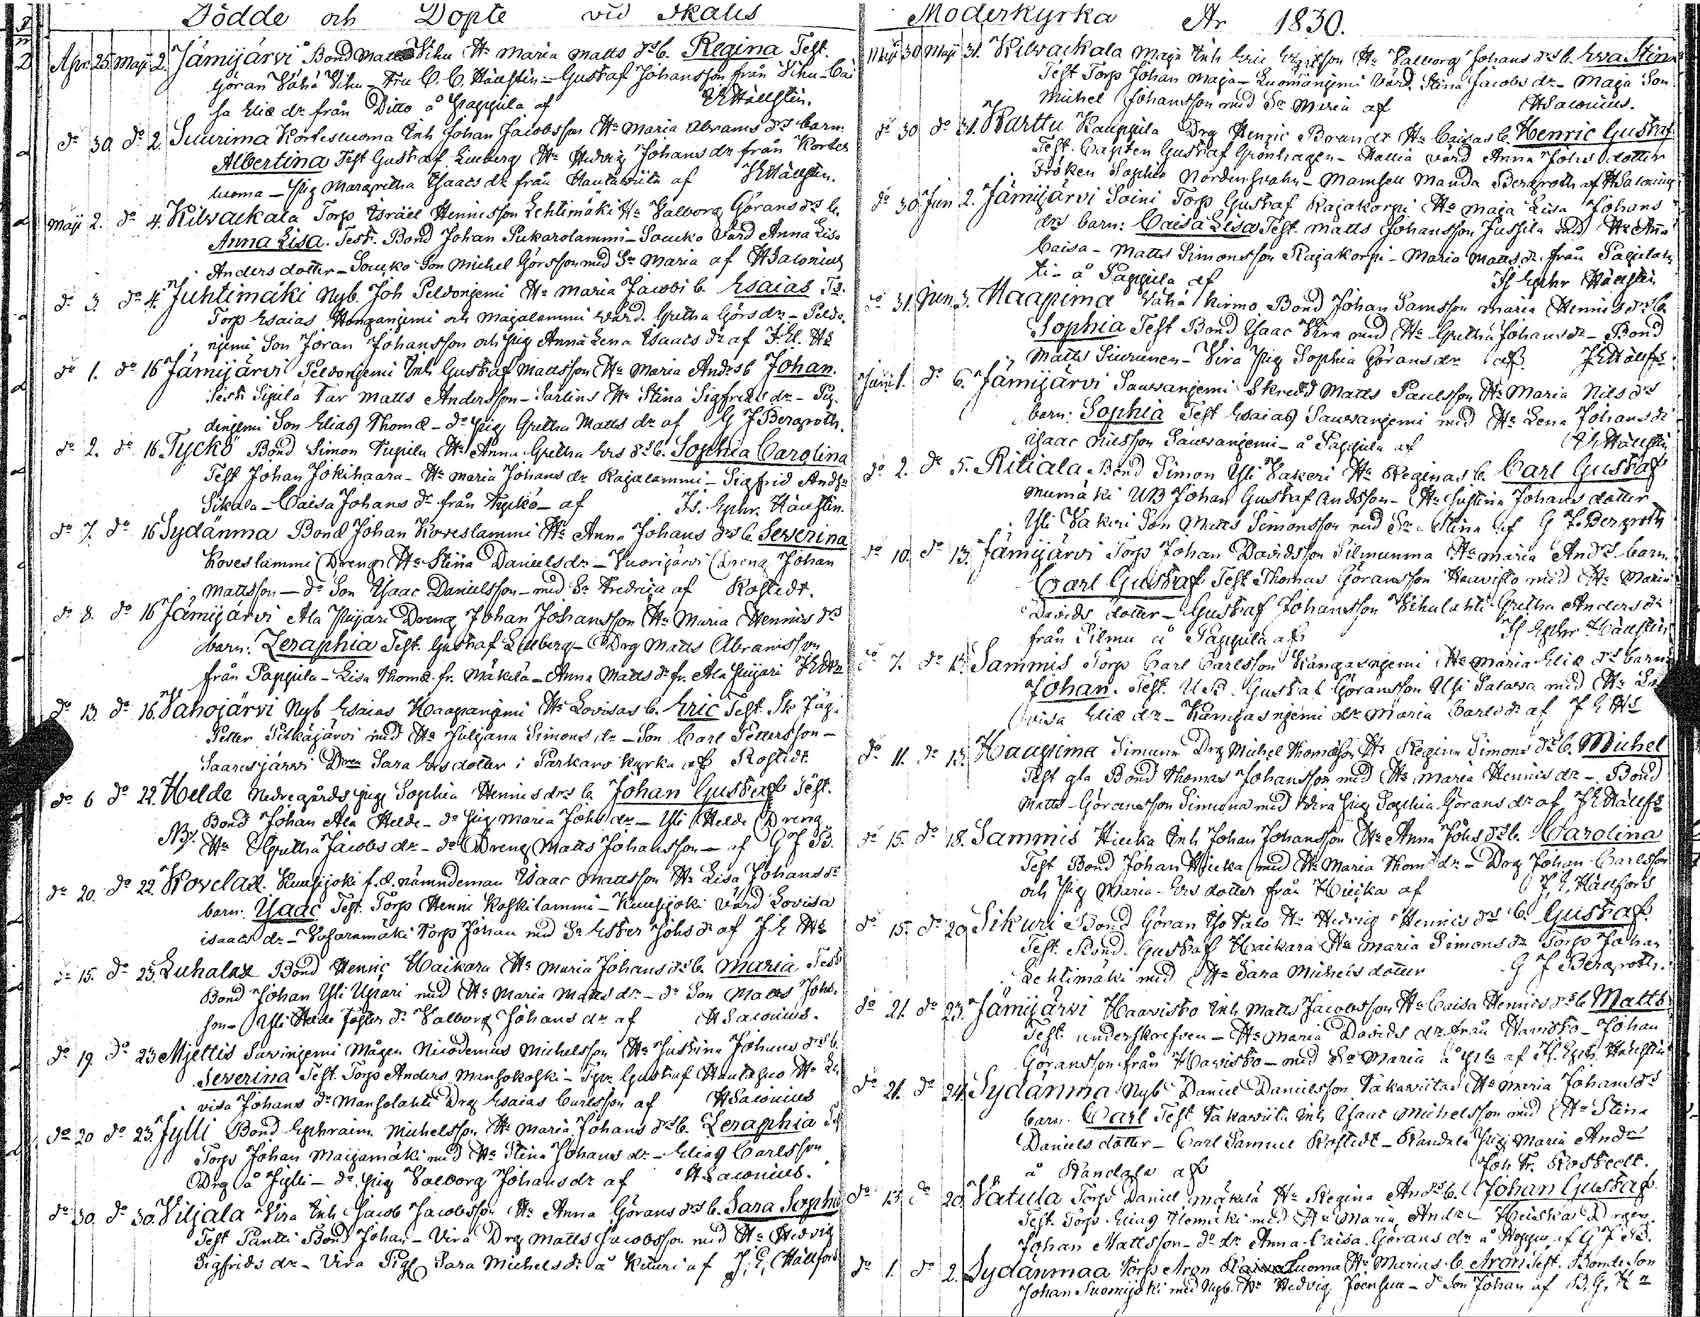 Födde och Döpte vid Ikalis
Apr. 25. Maji 2. Jämijärvi Bond Matts Vihu Hu Maria Matts dr b. Regina Test.
Göran Vähä Vihu - Fru C. C. Hällstén - Gustaf Johansson från Vihu - Cai
sa Eliæ dr från Ditto å Pappila af Hällstén.
do 30 do 2. Suurima Kortesluoma Inh Johan Jacobsson Hu Maria Abrams dr barn:
Albertina Test Gustaf Limberg Hu Hedvig Johans dr från Kortes
luoma - Pig Margretha Isaacs dr från af Hällstén.
Maji 2. do 4. Kilvackala Torp Israel Henricsson Lehtimäki Hu Valborg Görans dr b.
Anna Lisa. Test. Bond Johan Pukarolammi - Soucko Värd Anna Lisa
Anders dotter - Soucko Son Michel Görsson med Sr Maria af HSalonius
do 3. do 4. Juhtimäki Nyb. Joh Peldonjemi Hu Maria Jacobs b. Esaias Te.
Torp Esaias Hongonjemi och Majalammi Värd. Gretha Görs dr - Peldo
njemi Son Jöran Johansson och Pig Anna Lena Isaacs dr af J. E. Hs
do 1. do 16 Jämijärvi Peldonjemi Inh Gustaf Mattsson Hu Maria Andrs b Johan.
Test Sipilä Far Matts Andersson - Sarlins Hu Stina Sigfrids dr - Pel
donjemi Son Elias Thomæ - do Pig Gretha Matts dr af G J Bergroth.
do 2. do 16 Tyckö Bond Simon Tupila Hu Anna Gretha Ers dr b. Sophia Carolina
Test Johan Jokihaara - Hu Maria Johans dr Rajalammi - Sigfrid Andrs
Sikala - Caisa Johans dr från Tyckö - af Is. Ephr. Hällstén.
do 7. do 16 Sydänma Bond Johan Koveslammi Hu Anna Johans dr b. Severina
Koveslammi Dreng Hu Stina Daniels dr - Vuorijärvi Dreng Johan
Mattsson - do Son Isaac Danielsson - med Sr Fredrica af Rostedt.
do 8. do 16 Jämijärvi Ala Peijari Dreng Johan Johansson Hu Maria Henrics dr
barn: Zeraphia Test. Gustaf Limberg - Drg Matts Abramsson
från Pappila - Lisa Thomæ fr. Mäkelä - Anna Matts dr fr. Ala Peijari
do 13. do 16. Vahojärvi Nyb Esaias Haapanjemi Hu Lovisas b. Eric Test. Sk Jäg.
Petter Pitkäjärvi med Hu Juliana Simons dr - Son Carl Pettersson -
Saaresjärvi Dren Sara Ers dotter i Parkano kyrka af Rostedt.
do 6 do 22. Helde Nedregårds Pig Sophia Henrics dr b. Johan Gustaf Test.
Bond Johan Ala Helde - do Pig Maria Johs dr - Yli Helde Dreng
Hu Gretha Jacobs dr - do Dreng Matts Johansson - af G J B.
do 20. do 22 Kovelax. Kuusijoki f.d. nämndeman Isaac Mattsson Hu Lisa Johans dr
barn: Isaac Test. Torp Henric Koskilammi - Kuusijoki värd Lovisa
Isaacs dr - Vuorenmäki Torp Johan med Sr Ester Johs dr af J E Hs
do 15. do 23. Luhalax Bond Henric Haikara Hu Maria Johans dr b. Maria Test
Bond Johan Yli Uppari med Hu Maria Matts dr - do Son Matts Johs
son - Yli Hede Jöster dr Valborg Johans dr af HSalonius.
do 19. do 23 Mjettis Sarvinjemi Mågen Nicodemus Michelsson Hu Justina Johans dr b.
Severina Test. Torp Anders Mansokoski - Torp Gustaf Hautapuo Hu Lo
visa Johans dr Mansolahti Drg Esaias Carlsson af HSalonius
do 20 do 23. Jylli Bond Ephraim Michelsson Hu Maria Johans dr b. Zeraphia Test
Torp Johan Maijamäki med Hu Stina Johans dr - Elias Carlsson
Drg å Jylli - do Pig Valborg Johans dr af HSalonius.
do 30. do 30. Viljala Vira Inh Jacob Jacobsson Hu Anna Görans dr b. Sara Sophia
Test Pantti Bond Johan - Vira Drg Matts Jacobsson med Hu Hedvig
Sigfrids dr - Vira Pig Sara Michels dr å Kiuri af J. E. Hällfors
Moderkyrka År 1830.
Maji 30 Maji 31. Kilvackala Maja Inh Eric Ersson Hu Valborg Johans dr b. Eva Stina
Test Torp Johan Maja - Luomanjemi Värd. Stina Jacobs dr - Maja Son
Michel Johansson med Sr Maria af HSalonius.
do 30 do 31. Karttu Kauppila Drg Henric Brandt Hu Caisas b. Henric Gustaf
Test. Capten Gustaf Grönhagen - Kallia värd Anna Johs dotter
Fröken Sophie Nordensvahn - Mamsell Manda Bergroth af HSalonius
do 30. Jun 2. Jämijärvi Soini Torp Gustaf Rajakorpi Hu Maja Lisa Johans
dr barn: Caisa Lisa Test. Matts Johansson Jussila med Hu Anna
Caisa - Matts Simonsson Rajakorpi - Maria Matts dr från Pajulah
ti - å Pappila af Is Ephr Hällstén
do 31. Jun 3. Haapima Vähä Kirmo Bond Johan Samsson Maria Henrics dr b.
Sophia Test Bond Isaac Vira med Hu Gretha Johans dr - Bond
Matts Siurinen - Vira Pig Sophia Görans dr af. J E Hällfs.
Junii 1. do 6. Jämijärvi Sauvanjemi Skredd Matts Paulsson Hu Maria Nils dr
barn: Sophia Test Esaias Sauvanjemi med Hu Lena Johans dr
Isaac Nilsson Sauvanjemi - å Pappila af Hällstén
do 2. do 5. Ritiala Bond Simon Yli Vakeri Hu Reginas b. Carl Gustaf
Mumäki UB Johan Gustaf Andsson - Hu Justina Johans dotter
Yli Vakeri Son Matts Simonsson med Sr Stina af G J Bergroth
do 10. do 13. Jämijärvi Torp Johan Davidsson Pilmunma Hu Maria Andrs barn
Carl Gustaf Test Thomas Göransson Haavisto med Hu Maria
Davids dotter - Gustaf Johansson Vihulahti Gretha Anders dr
från Pilmu å Pappila af Is Ephr Hällstén
do 7. do 13. Sammis Torp Carl Carlsson Kangasnjemi Hu Maria Eliæ dr barn
Johan. Test. Und. Gustaf Göransson Yli Satarsa med Hu Lo
visa Eliæ dr - Kangasnjemi dr Maria Carls dr af J E Hs
do 11. do 13. Haapima Simunn Drg Michel Thomæson Hu Regina Simons dr b. Michel
Test gla Bond Thomas Johansson med Hu Maria Henrics dr - Bond
Matts Göransson Simuna med Vira Pig Sophia Görans dr af J E Hällfs
do 15. do 18. Sammis Hiukka Inh Johan Johansson Hu Anna Johs dr b. Carolina
Test Bond Johan Hiukka med Hu Maria Thom dr - Drg Johan Carlsson
och Pig Maria Ers dotter från Hiukka af J. E. Hällfors
do 15. do 20. Sikuri Bond Göran Iso Talo Hu Hedvig Henrics dr b. Gustaf.
Test. Bond. Gustaf Haikara Hu Maria Simons dr Torp Johan
Lehtimäki med Hu Sara Michels dotter G J Bergroth.
do 21. do 23. Jämijärvi Haavisto Inh Matts Jacobsson Hu Caisa Henrics dr b Matts
Test. underskrefven - Hu Maria Davids dr från Havisto - Johan
Göransson från Havisto - med Sr Maria af Is. Eph. Hällstén
do 21. do 24. Sydänma Nyb Daniel Danielsson Vakavuita Hu Maria Johans dr
barn. Carl Test Inh Isaac Michelsson med Hu Stina
Daniels dotter - Carl Samuel Rostedt - Kandala Pig Maria Andr
å Kandala af Joh Fr. Rostedt.
do 13. do 20. Vatula Torp Daniel Mäkelä Hu Regina Andrs b. Johan Gustaf.
Test. Torp Elias Niemeki med Hu Maria Andr - Heiskas Drgen
Johan Mattsson - do dr Anna Caisa Görans dr af G J B.
do 1. do 2. Sydänmaa Torp Aron Luoma Hu Marias b. Aron Test. Bonde Son
Johan Suomijoki med Nyb. Hu Hedvig Joensuu - do Son Johan af